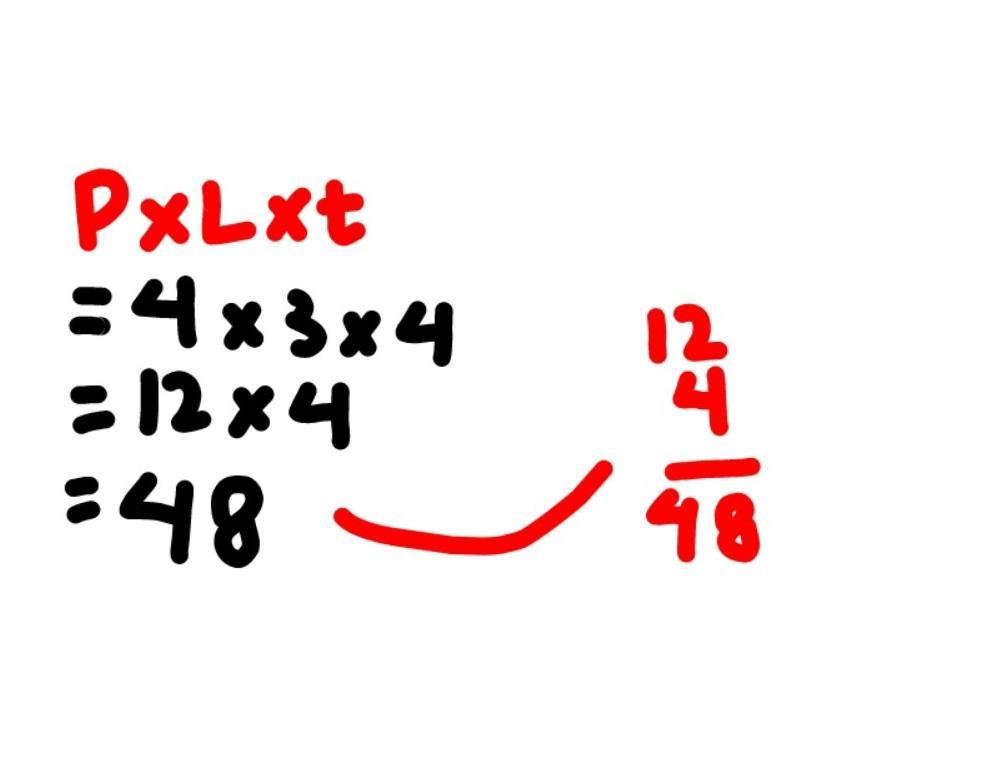 PxLxt
=4x3x4
=12x4
=48
12
4
48